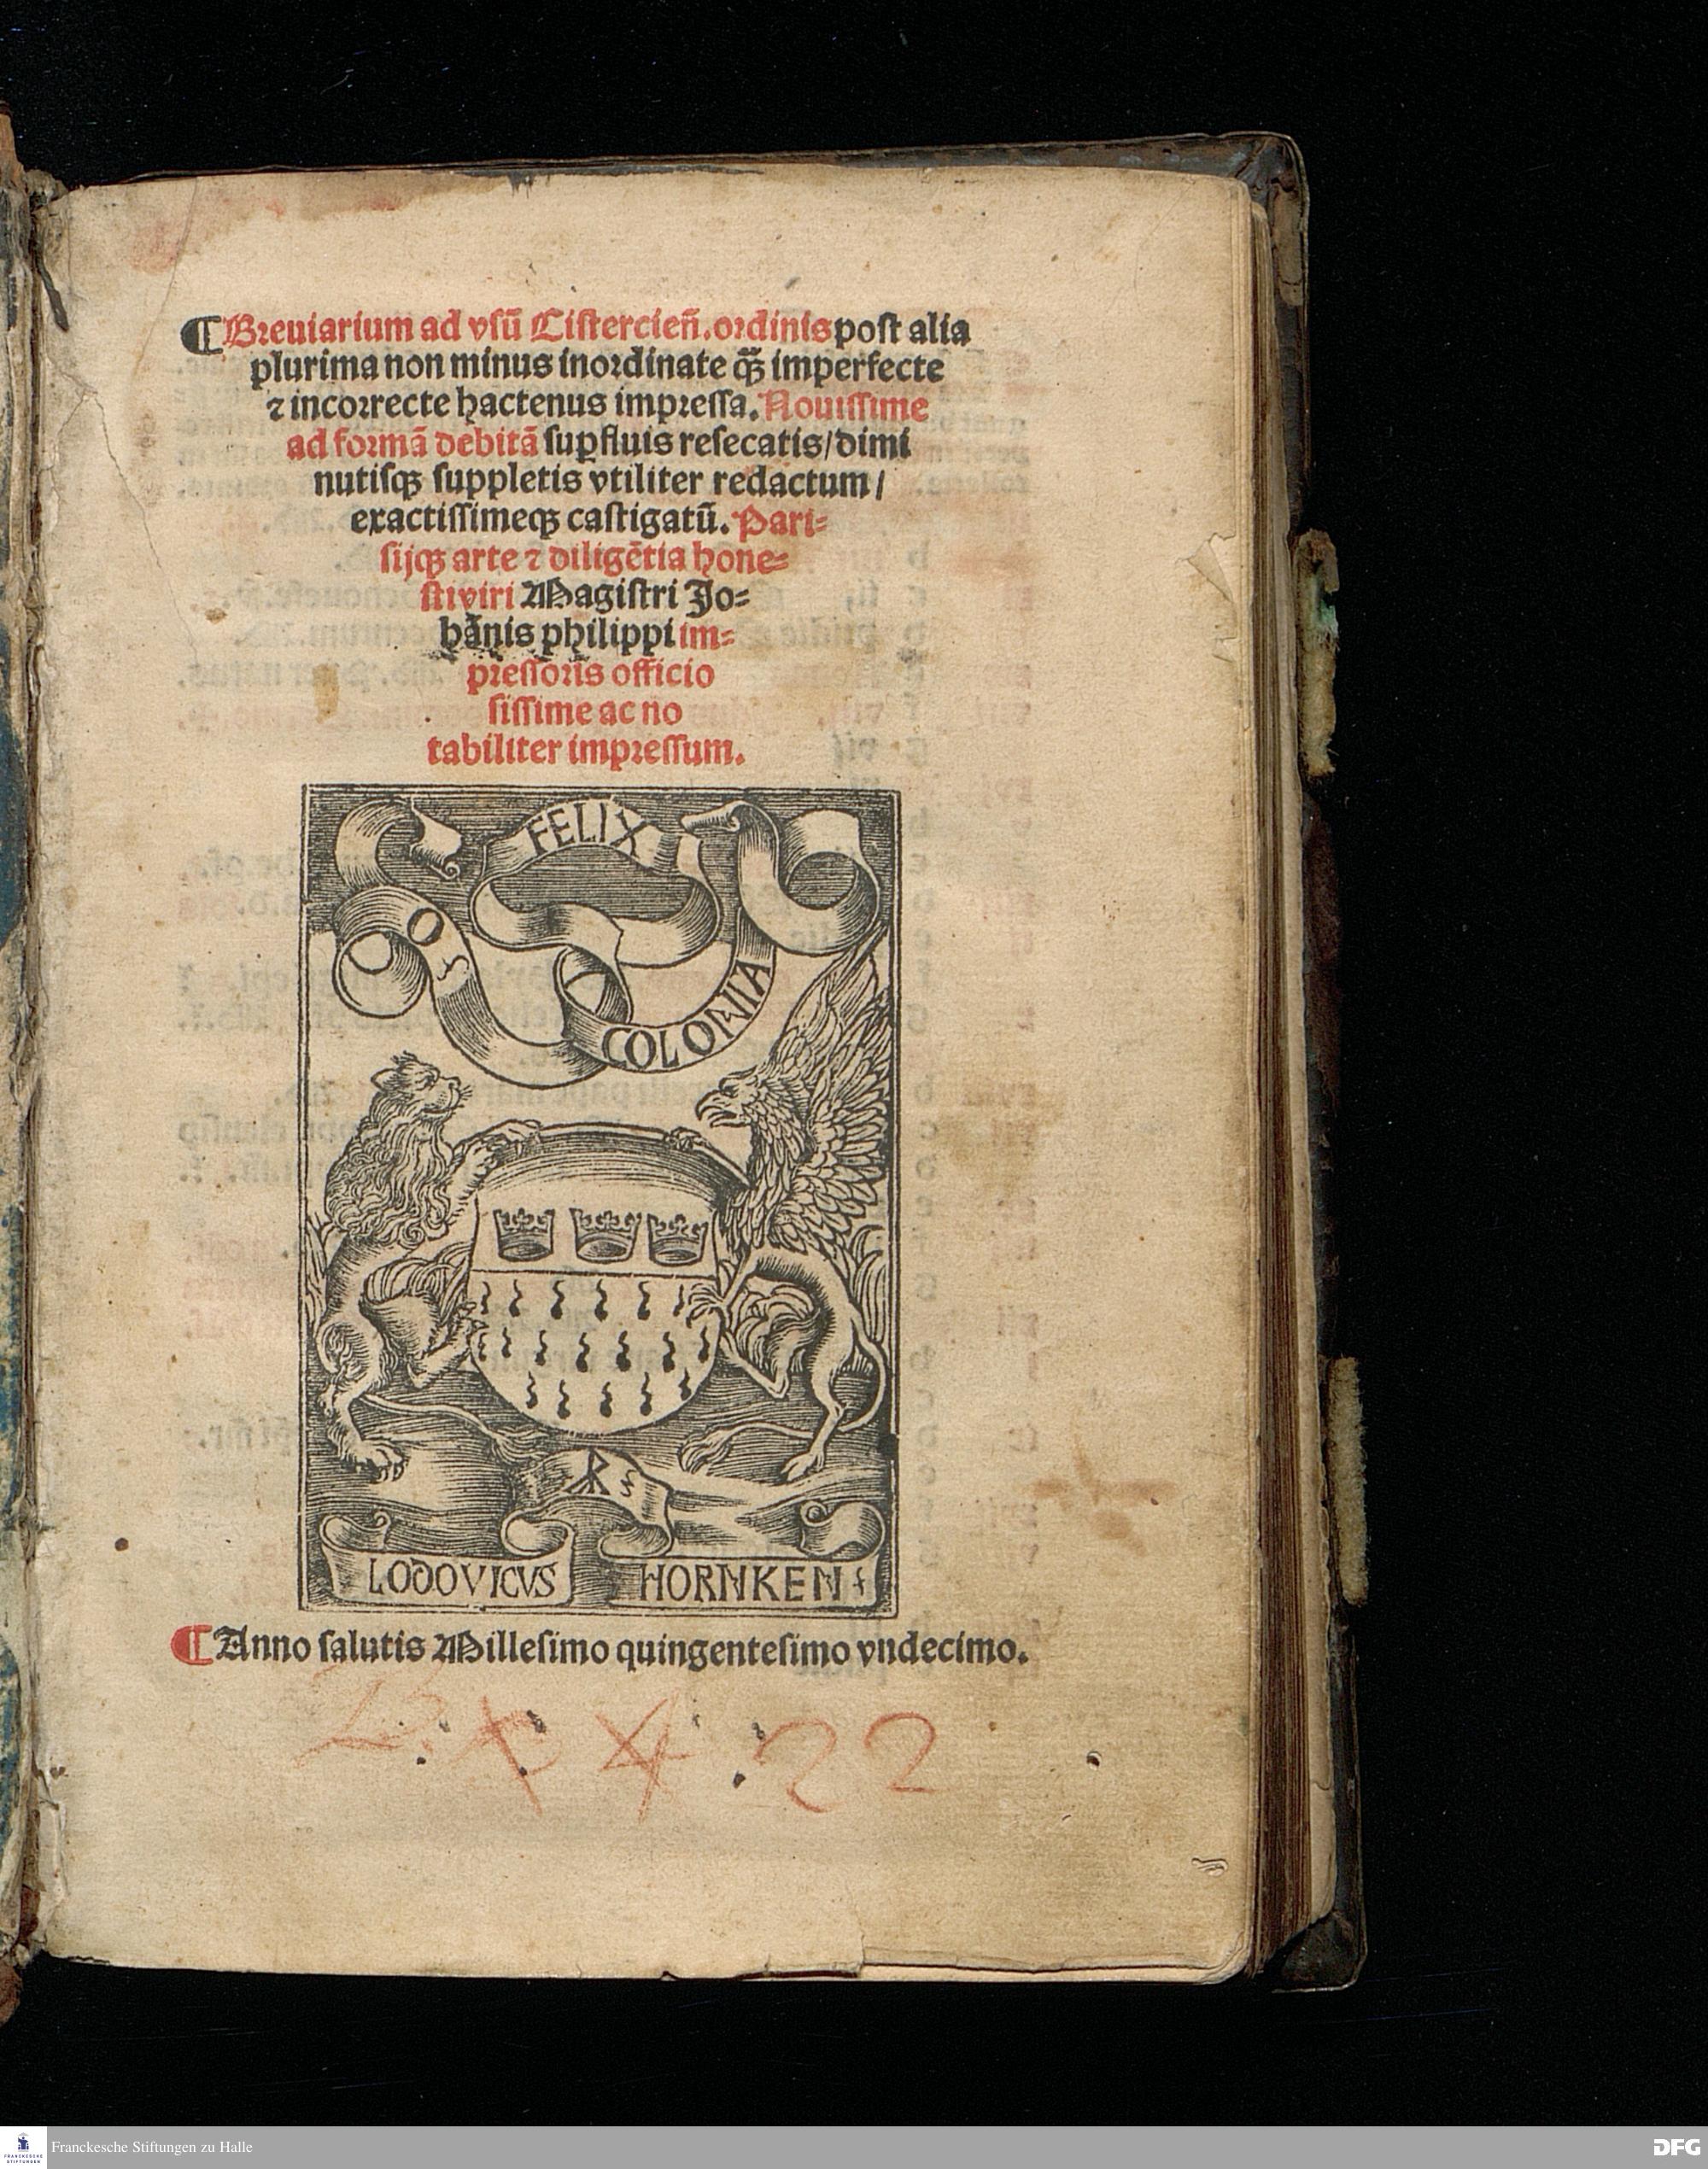 ¶Breuiarium ad vsū Cistercien̄. ordinis post alia
plurima non minus inordinate q̄ꝫ imperfecte
⁊ incorrecte hactenus impressa. Nouissime
ad formā debitā suꝑfluis resecatis/dimi
nutisqꝫ suppletis vtiliter redactum/
exactissimeqꝫ castigatū. Pari-
sijqꝫ arte ⁊ diligētia hone-
sti viri Magistri Jo-
hānis philippi im-
pressoris officio
sissime ac no
tabiliter impressum.
FELIX
O
COLONIA
LODOVICVS HORNKEN
¶Anno salutis Millesimo quingentesimo vndecimo.
22
Franckesche Stiftungen zu Halle
FRANCKESCHE
STIFTUNGEN
DFG